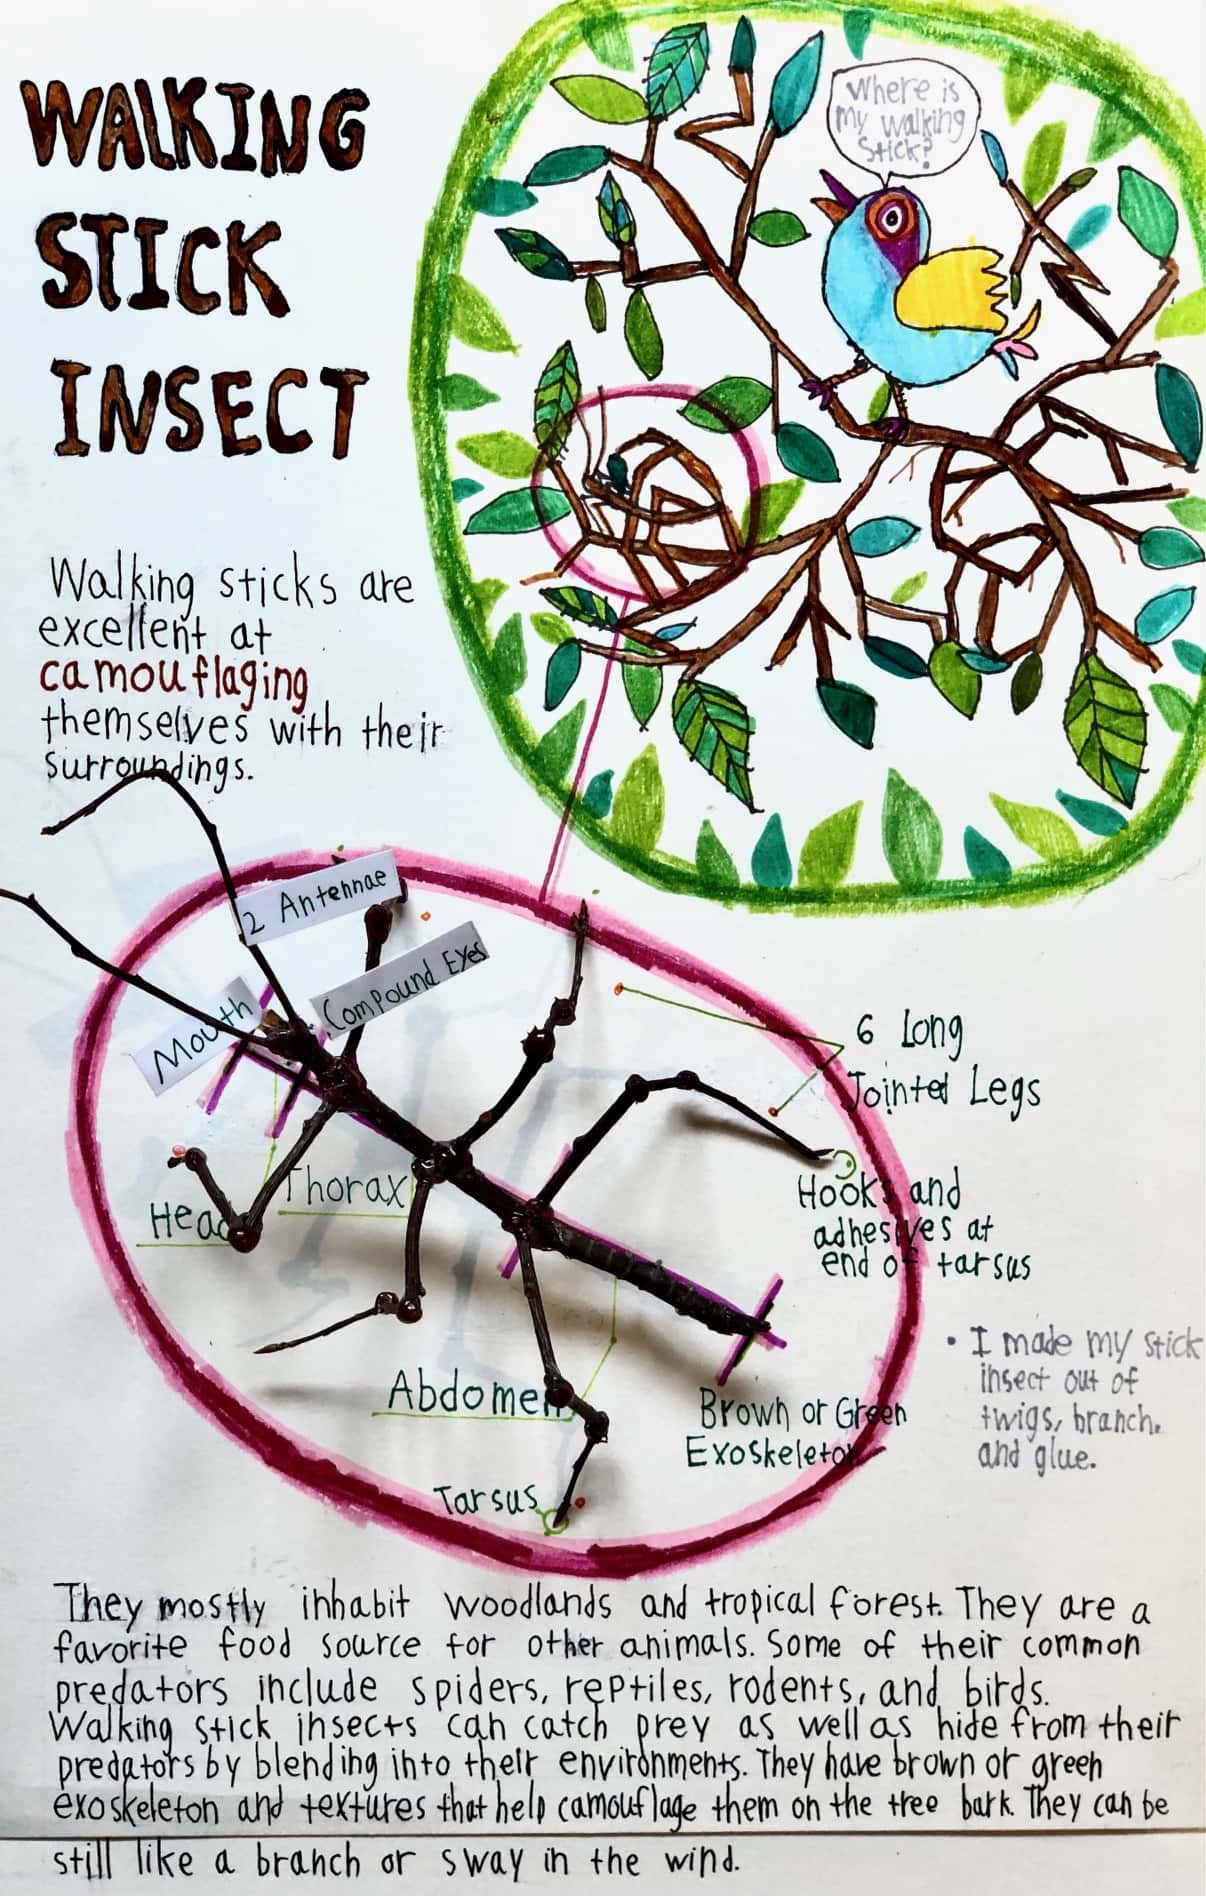 WALKING
STICK
INSECT
Where is
my walking
stick?
Walking sticks are
excellent at
camouflaging
themselves with their
surroundings.
2 Antennae
Compound Eyes
Mouth
Head
Thorax
6 Long
Jointed Legs
Hooks and
adhesives at
end of tarsus
Abdomen
Brown or Green
Exoskeleton
Tarsus
• I made my stick
insect out of
twigs, branch.
and glue.
They mostly inhabit woodlands and tropical forest. They are a
favorite food source for other animals. Some of their common
predators include spiders, reptiles, rodents, and birds.
Walking stick insects can catch prey as well as hide from their
predators by blending into their environments. They have brown or green
exoskeleton and textures that help camouflage them on the tree bark. They can be
still like a branch or sway in the wind.